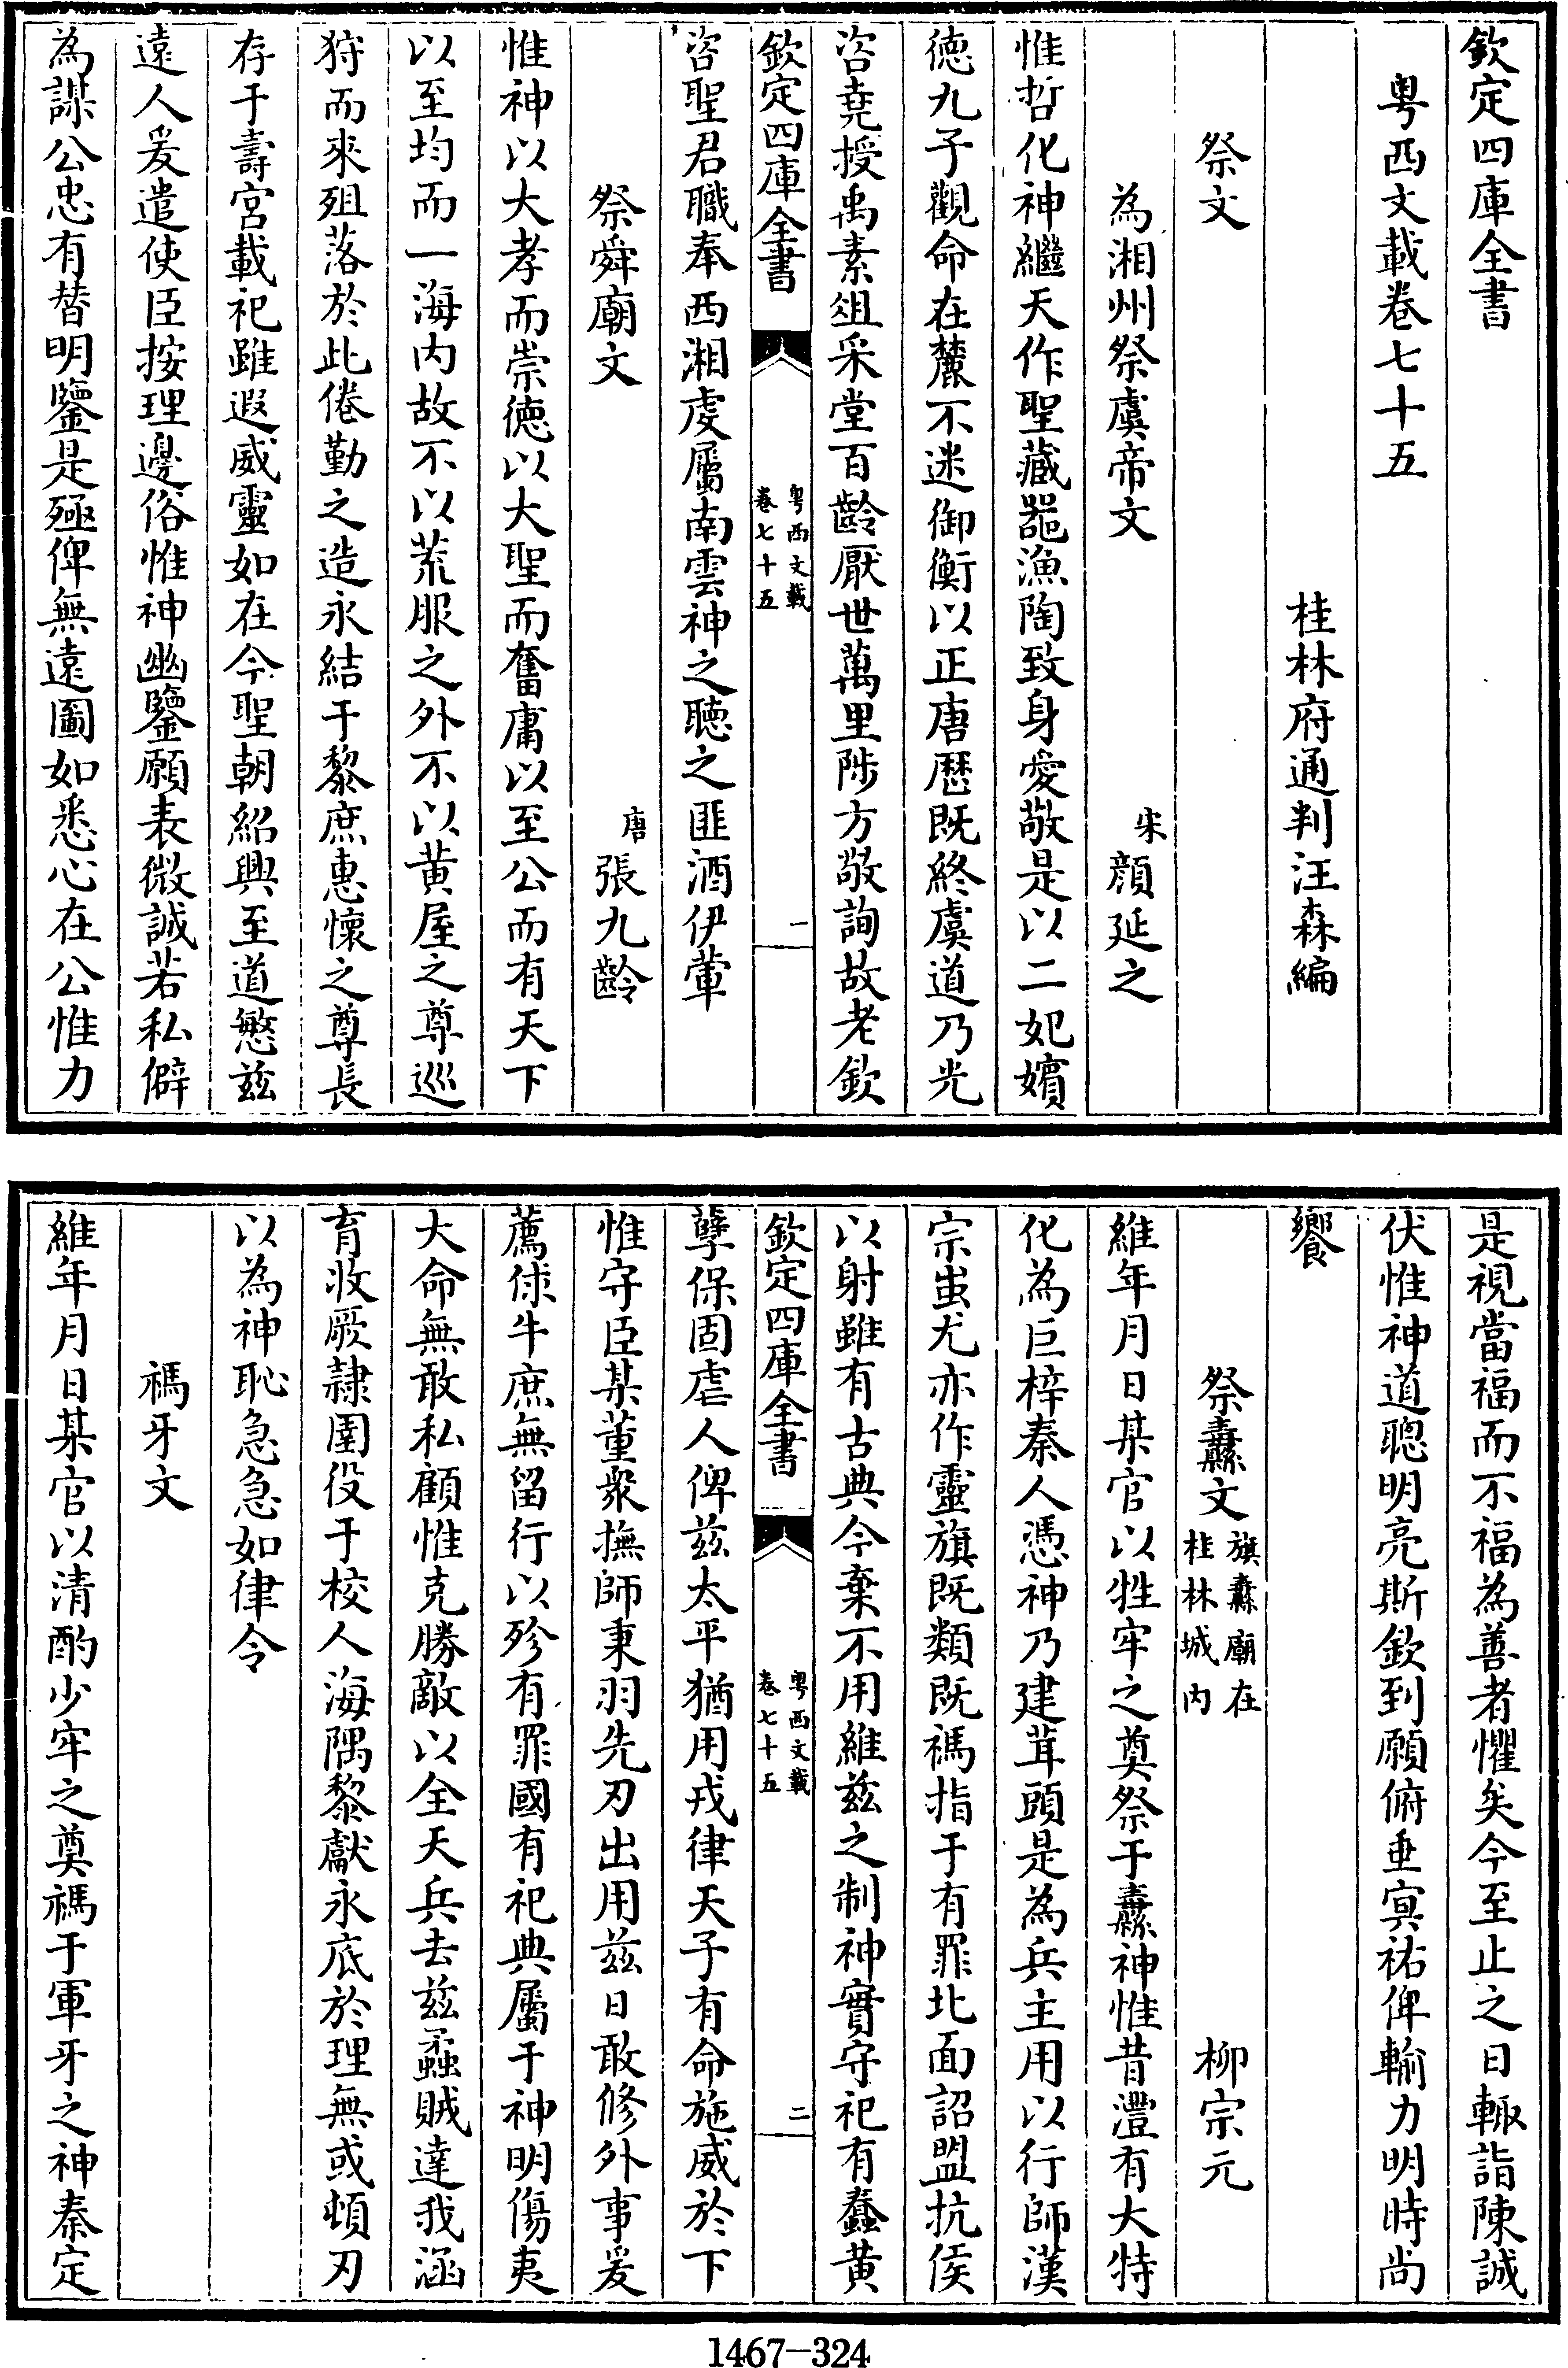 欽定四庫全書
粤西文載卷七十五
桂林府通判汪森編
祭文
為湘州祭虞帝文 宋顔延之
惟哲化神繼天作聖藏噐漁陶致身愛敬是以二妃嬪
徳九子觀命在麓不迷御衡以正唐厯既終虞道乃光
咨堯授禹素俎采堂百齡厭世萬里陟方敬詢故老欽
欽定四庫全書
粤西文載
卷七十五
一
咨聖君職奉西湘䖍屬南雲神之聽之匪酒伊葷
祭舜廟文 唐張九齡
惟神以大孝而崇徳以大聖而奮庸以至公而有天下
以至均而一海内故不以荒服之外不以黄屋之尊巡
狩而來殂落於此倦勤之造永結于黎庶惠懐之尊長
存于壽宮載祀雖遐威靈如在今聖朝紹興至道慜兹
遠人爰遣使臣按理邊俗惟神幽鑒願表微誠若私僻
為謀公忠有替明鑒是殛俾無遠圖如悉心在公惟力
是視當福而不福為善者懼矣今至止之日輙詣陳誠
伏惟神道聰明亮斯欽到願俯垂㝠祐俾輸力明時尚
饗
祭纛文 旗纛廟在桂林城内 柳宗元
維年月日某官以牲牢之奠祭于纛神惟昔灃有大特
化為巨梓秦人憑神乃建茸頭是為兵主用以行師漢
宗蚩尤亦作靈旗既類既禡指于有罪北面詔盟抗侯
以射雖有古典今棄不用維兹之制神實守祀有蠢黄
欽定四庫全書
粤西文載
卷七十五
二
孽保固虐人俾兹太平猶用戎律天子有命施威於下
惟守臣某董衆撫師秉羽先刃出用兹日敢修外事爰
薦俅牛庶無留行以殄有罪國有祀典屬于神明傷夷
大命無敢私顧惟克勝敵以全天兵去兹蟊賊達我涵
育收厥隷圉役于校人海隅黎獻永底於理無或頓刃
以為神恥急急如律令
禡牙文
維年月日某官以清酌少牢之奠禡于軍牙之神秦定
1467-324